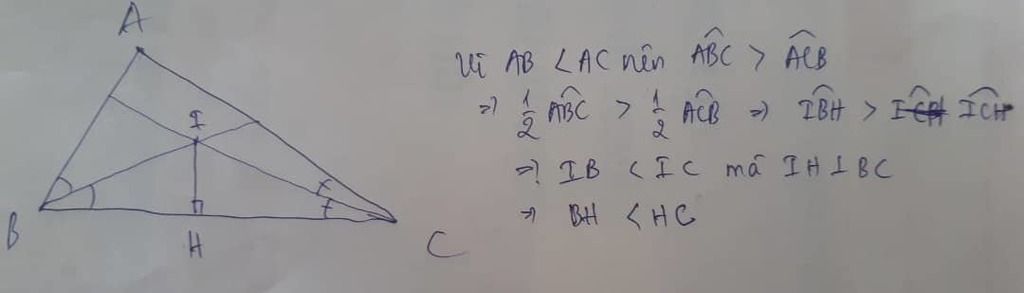 A
I
B
H
C
Vì AB < AC nên \widehat{ABC} > \widehat{ACB}
=> 1/2 \widehat{ABC} > 1/2 \widehat{ACB} => \widehat{IBH} > \widehat{ICH}
=> IB < IC mà IH ⊥ BC
=> BH < HC